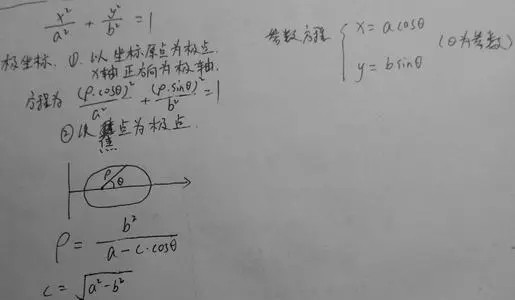 x²/a² + y²/b² = 1
极坐标. ①. 以坐标原点为极点.
x轴正方向为极轴.
方程为 (ρ·cosθ)²/a² + (ρ·sinθ)²/b² = 1
②以焦点为极点.
ρ θ
ρ = b²/(a - c·cosθ)
c = √(a²-b²)
参数方程 { x = a cosθ
y = b sinθ (θ为参数)